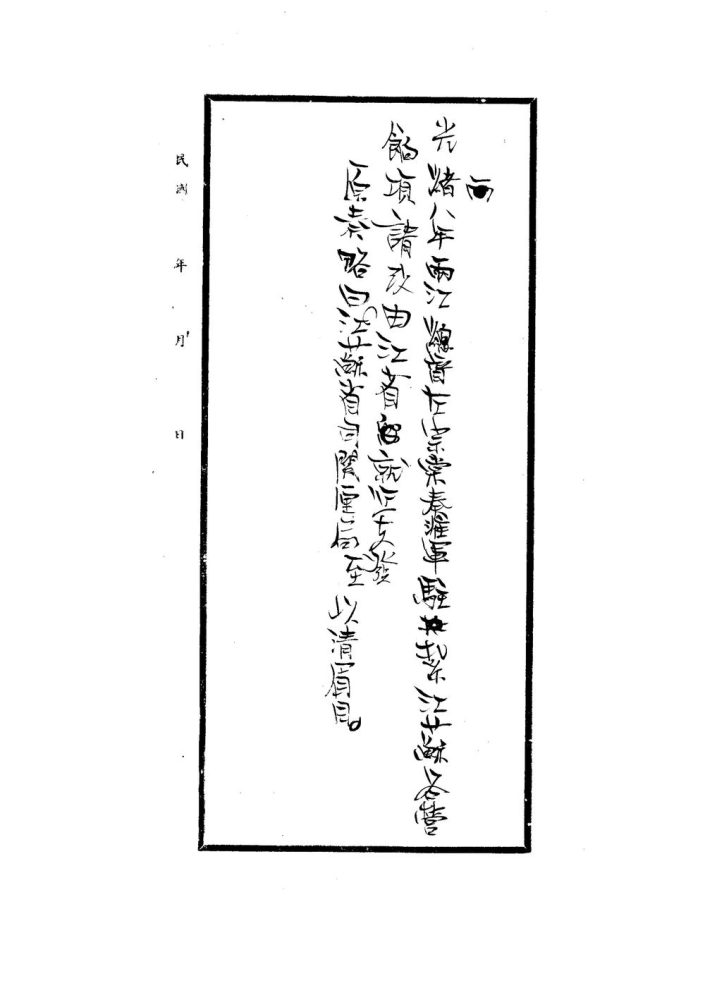 光緒八年兩江總督左宗棠奏淮軍駐紮江蘇各營
餉項請改由江省就近支發
原奏略曰江蘇省司關厘局至以清眉目。
民國 年 月 日